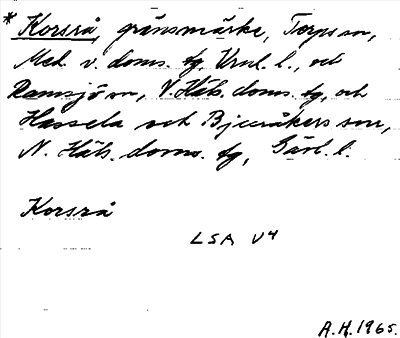 * Korsrå, gränsmärke, Torps sn,
Med. v. doms. tg, Vnl. l., och
Ramsjö sn, V. Häls. doms. tg, och
Hassela och Bjuråkers snr,
N. Häls. doms. tg, Gävl. l.
Korsrå
LSA V4
A.H. 1965.